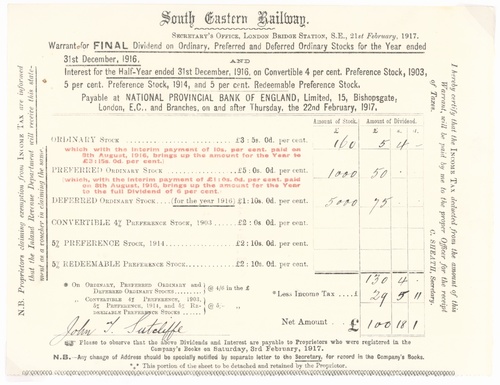 South Eastern Railway.
SECRETARY'S OFFICE, LONDON BRIDGE STATION, S.E., 21st February, 1917.
Warrant for FINAL Dividend on Ordinary, Preferred and Deferred Ordinary Stocks for the Year ended
31st December, 1916.
AND
Interest for the Half-Year ended 31st December, 1916, on Convertible 4 per cent. Preference Stock, 1903,
5 per cent. Preference Stock, 1914, and 5 per cent. Redeemable Preference Stock.
Payable at NATIONAL PROVINCIAL BANK OF ENGLAND, Limited, 15, Bishopsgate,
London, E.C., and Branches, on and after Thursday, the 22nd February, 1917.
Amount of Stock. Amount of Dividend.
£ £ s. d.
ORDINARY STOCK £3 : 5s. 0d. per cent. 160 5 4 -
which with the interim payment of 10s. per cent. paid on
9th August, 1916, brings up the amount for the Year to
£3 : 15s. 0d. per cent.)
PREFERRED ORDINARY STOCK £5 : 0s. 0d. per cent. 1000 50 -
(which, with the interim payment of £1 : 0s. 0d. per cent. paid
on 9th August, 1916, brings up the amount for the Year
to the full Dividend of 6 per cent.
DEFERRED ORDINARY STOCK (for the year 1916) £1 : 10s. 0d. per cent. 5000 75 -
CONVERTIBLE 4% PREFERENCE STOCK, 1903 £2 : 0s. 0d. per cent.
5% PREFERENCE STOCK, 1914 £2 : 10s. 0d. per cent.
5% REDEEMABLE PREFERENCE STOCK £2 : 10s. 0d. per cent.
130 4 -
* ON ORDINARY, PREFERRED ORDINARY AND
DEFERRED ORDINARY STOCKS @ 4/6 in the £
„ CONVERTIBLE 4% PREFERENCE, 1903,
5% PREFERENCE, 1914, AND 5% RE-
DEEMABLE PREFERENCE STOCKS @ 5/-
* Less Income Tax £ 29 5 11
Net Amount £ 100 18 1
John T. Sutcliffe
Please to observe that the above Dividends and Interest are payable to Proprietors who were registered in the
Company's Books on Saturday, 3rd February, 1917.
N.B.—Any change of Address should be specially notified by separate letter to the Secretary, for record in the Company's Books.
This portion of the sheet to be detached and retained by the Proprietor.
N.B. Proprietors claiming exemption from INCOME TAX are informed
that the Inland Revenue Department will receive this state-
ment as a voucher in claiming the same.
I hereby certify that the INCOME TAX deducted from the amount of this
Warrant, will be paid by me to the proper Officer for the receipt
of Taxes.
C. SHEATH, Secretary.